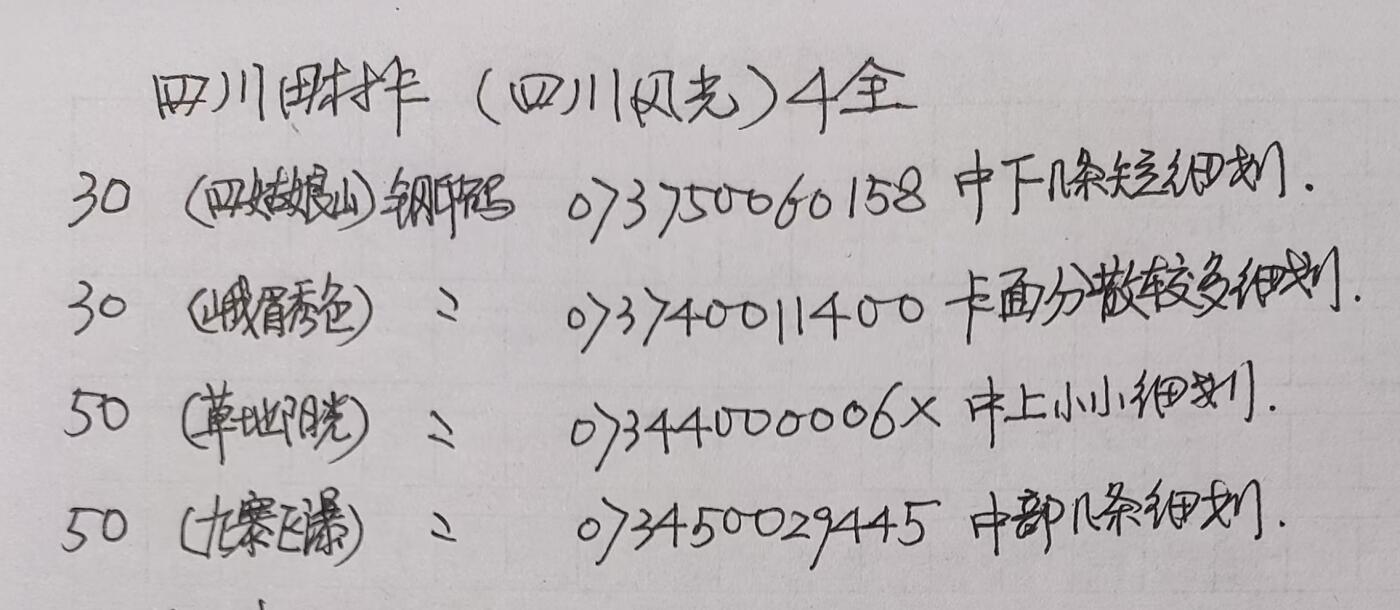 四川田村卡（四川风光）4全
30 （四姑娘山）钢印码 073750060158 中下几条短细划.
30 （峨眉秀色） 〃 073740011400 卡面分散较多细划.
50 （草地阳光） 〃 07344000006X 中上小小细划.
50 （九寨飞瀑） 〃 073450029445 中部几条细划.